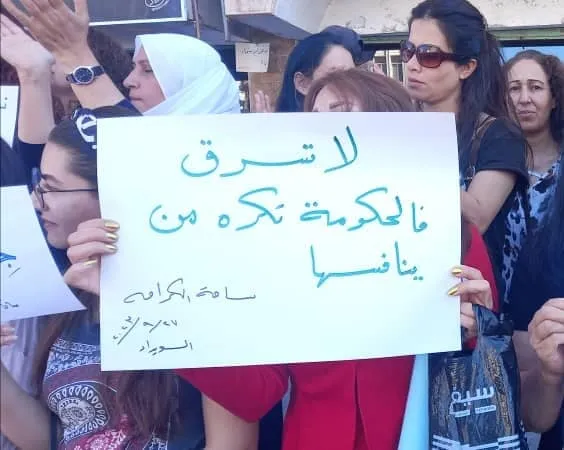 لا تسرق
فالحكومة تكره من
ينافسها
ساحة الكرامة
السويداء
سيم